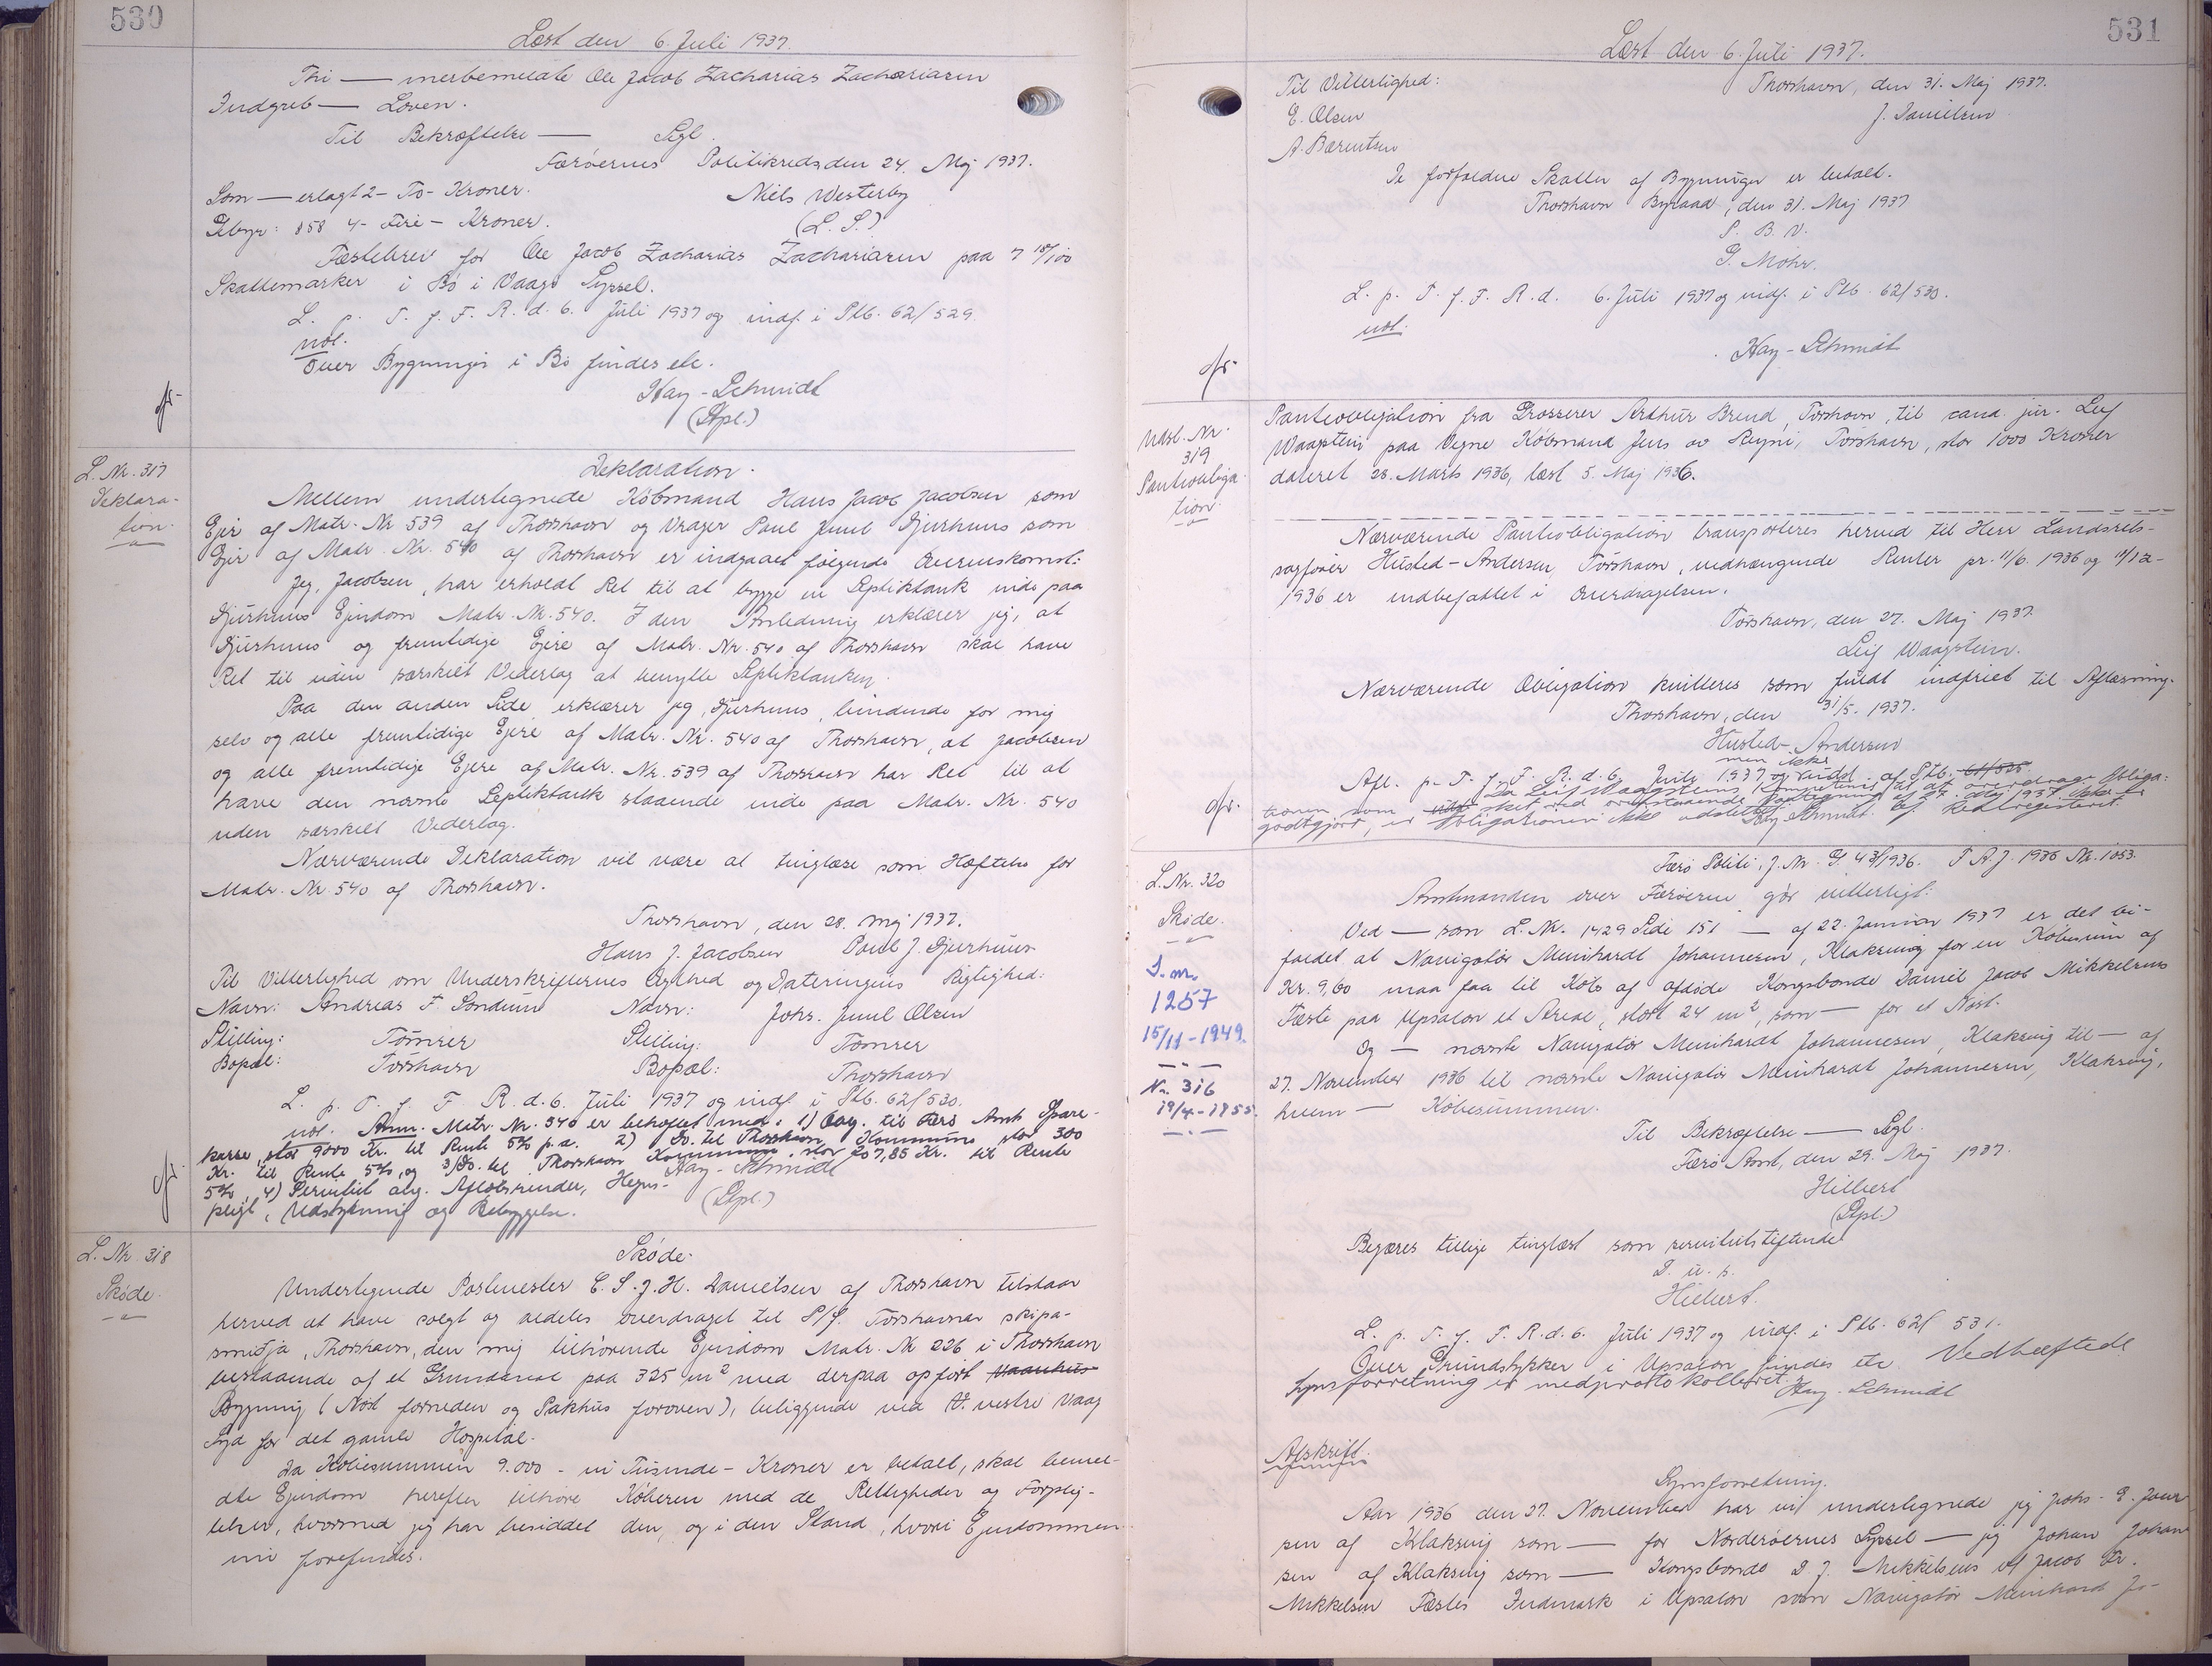 530
Læst den 6. Juli 1937.
Thi — merbemeldte Ole Jacob Zacharias Zachariasen
Indgreb — Loven.
Til Bekræftelse — Segl.
Færöernes Politikreds den 24. Maj 1937.
Som — erlagt 2 - To - Kroner.
Niels Westerby
Gebyr: 858 4 - Fire - Kroner.
(L. S.)
Fæstebrev for Ole Jacob Zacharias Zachariasen paa 7 18/100
Skattemarker i Bö i Vaagö Syssel.
L. p. T. f. F. R. d. 6. Juli 1937 og indf. i Ptb. 62/529.
udl.
Över Bygninger i Bö findes ell.
Kay-Schmidt
(Stpl.)
L. Nr. 317
Deklara-
tion.
Deklaration.
Mellem undertegnede Köbmand Hans Jacob Jacobsen som
Ejer af Matr. Nr 539 af Thorshavn og Vrager Paul Juul Djurhuus som
Ejer af Matr. Nr. 540 af Thorshavn er indgaaet fölgende Overenskomst:
Jeg, Jacobsen, har erholdt Ret til at bygge en Septiktank inde paa
Djurhuus Ejendom Matr. Nr. 540. I den Anledning erklærer jeg, at
Djurhuus og fremtidige Ejere af Matr. Nr. 540 af Thorshavn skal have
Ret til uden særskilt Vederlag at benytte Septiktanken.
Paa den anden Side erklærer jeg, Djurhuus, bindende for mig
selv og alle fremtidige Ejere af Matr. Nr. 540 af Thorshavn, at Jacobsen
og alle fremtidige Ejere af Matr. Nr. 539 af Thorshavn har Ret til at
have den nævnte Septiktank staaende inde paa Matr. Nr. 540
uden særskilt Vederlag.
Nærværende Deklaration vil være at tinglæse som Hæftelse for
Matr. Nr. 540 af Thorshavn.
Thorshavn, den 28. Maj 1937.
Hans J. Jacobsen Paul J. Djurhuus
Til Vitterlighed om Underskrifternes Ægthed og Dateringens Rigtighed:
Navn: Andreas F. Sondum Navn: Johs. Juul Olsen
Stilling: Tömrer Stilling: Tömrer
Bopæl: Torshavn Bopæl: Thorshavn
L. p. T. f. F. R. d. 6. Juli 1937 og indf. i Ptb. 62/530.
udl. Anm. Matr. Nr. 540 er behæftet med: 1) Obg. til Færö Amts Spare-
kasse, stor 9000 Kr. til Rente 5% p.a. 2) Do. til Thorshavn Kommune stor 300
Kr. til Rente 5%, og 3) Do. til Thorshavn Kommune, stor 207,85 Kr. til Rente
5%, 4) Servitut ang. Aflöbsrender, Hegns-
Kay-Schmidt
pligt, Udstykning og Bebyggelse.
(Stpl.)
L. Nr 318
Sköde.
Sköde.
Undertegnede Postmester C. S. J. H. Danielsen af Thorshavn tilstaar
herved at have solgt og aldeles overdraget til P/f. Torshavnar skipa-
smiðja, Thorshavn, den mig tilhörende Ejendom Matr. Nr 226 i Thorshavn
bestaaende af et Grundareal paa 325 m² med derpaa opfört Vaanhus
Bygning (Nöst forneden og Pakhus foroven), beliggende ved V. vestre Vaag
Syd for det gamle Hospital.
Da Köbesummen 9.000 - ni Tusinde - Kroner er betalt, skal bemel-
dte Ejendom herefter tilhöre Köberen med de Rettigheder og Forplig-
telser, hvormed jeg har besiddet den, og i den Stand, hvori Ejendommen
nu forefindes.
531
Læst den 6. Juli 1937.
Til Vitterlighed:
Thorshavn, den 31. Maj 1937.
E. Olsen
J. Danielsen
A. Bærentsen
De forfaldne Skatter af Bygninger er betalt.
Thorshavn Byraad, den 31. Maj 1937
P. B. V.
G. Mohr.
L. p. T. f. F. R. d. 6. Juli 1937 og indf. i Ptb. 62/530.
udl.
Kay-Schmidt
Udsl. Nr.
319
Pantobliga-
tion.
Panteobligation fra Grosserer Arthur Brend, Torshavn, til cand. jur. Leif
Waagstein paa Vegne Köbmand Jens av Reyni, Torshavn, stor 1000 Kroner
dateret 28. Marts 1936, læst 5. Maj 1936.
Nærværende Panteobligation transporteres herved til Herr Landsrets-
sagförer Husted-Andersen Torshavn, vedhængende Renter pr. 11/6. 1936 og 11/12-
1936 er indbefattet i Overdragelsen.
Torshavn, den 27. Maj 1937.
Leif Waagstein.
Nærværende Obligation kvitteres som fuldt indfriet til Aflæsning.
Thorshavn, den 31/5. 1937.
Husted-Andersen
men ikke
Afl. p. T. f. F. R. d. 6. Juli 1937 og udsl. af Ptb. 61/525.
Da Leif Waagsteins Kompetence til at overdrage Obliga-
tionen som sket ved ovenstaaende Paategning af 27. Maj 1937 ikke er
godtgjort, er Obligationen ikke udslettet af Realregisteret.
Kay-Schmidt.
L. Nr. 320
Sköde.
J. nr.
1257
15/11-1949.
Nr. 316
19/4-1955.
Færö Politi, J. Nr. G. 43/1936. F A. J. 1936 Nr. 1053.
Amtmanden over Færöerne gör vitterligt:
Ved — som L. Nr. 1429 Side 151 — af 22. Januar 1937 er det bi-
faldet at Navigatör Meinhardt Johannesen, Klaksvig for en Köbesum af
Kr. 9,60 maa faa til Köb af afdöde Kongsbonde Daniel Jacob Mikkelsens
Fæste paa Upsalon et Areal, stort 24 m², som — for et Nöst.
Og — nævnte Navigatör Meinhardt Johannesen, Klaksvig til — af
27. November 1936 til nævnte Navigatör Meinhardt Johannesen, Klaksvig,
hvem — Köbesummen.
Til Bekræftelse — Segl.
Færö Amt, den 29. Maj 1937.
Hilbert
(Stpl.)
Begæres tillige tinglæst som servitutstiftende
D. u. p.
Hilbert.
L. p. T. f. F. R. d. 6. Juli 1937 og indf. i Ptb. 62/531.
Över Grundstykker i Upsalon findes ell. Vedhæftede
Synsforretning er medprotokolleret.
Kay-Schmidt
Afskrift.
Synsforretning.
Aar 1936 den 27. November har vi undertegnede jeg Johs. E. Joen-
sen af Klaksvig som — for Norderöernes Syssel — jeg Johan Johan-
sen af Klaksvig som — Kongsbonde D. J. Mikkelsens v/ Jacob Kr.
Mikkelsen Fæstes Indmark i Upsalon som Navigatör Meinhard Jo-